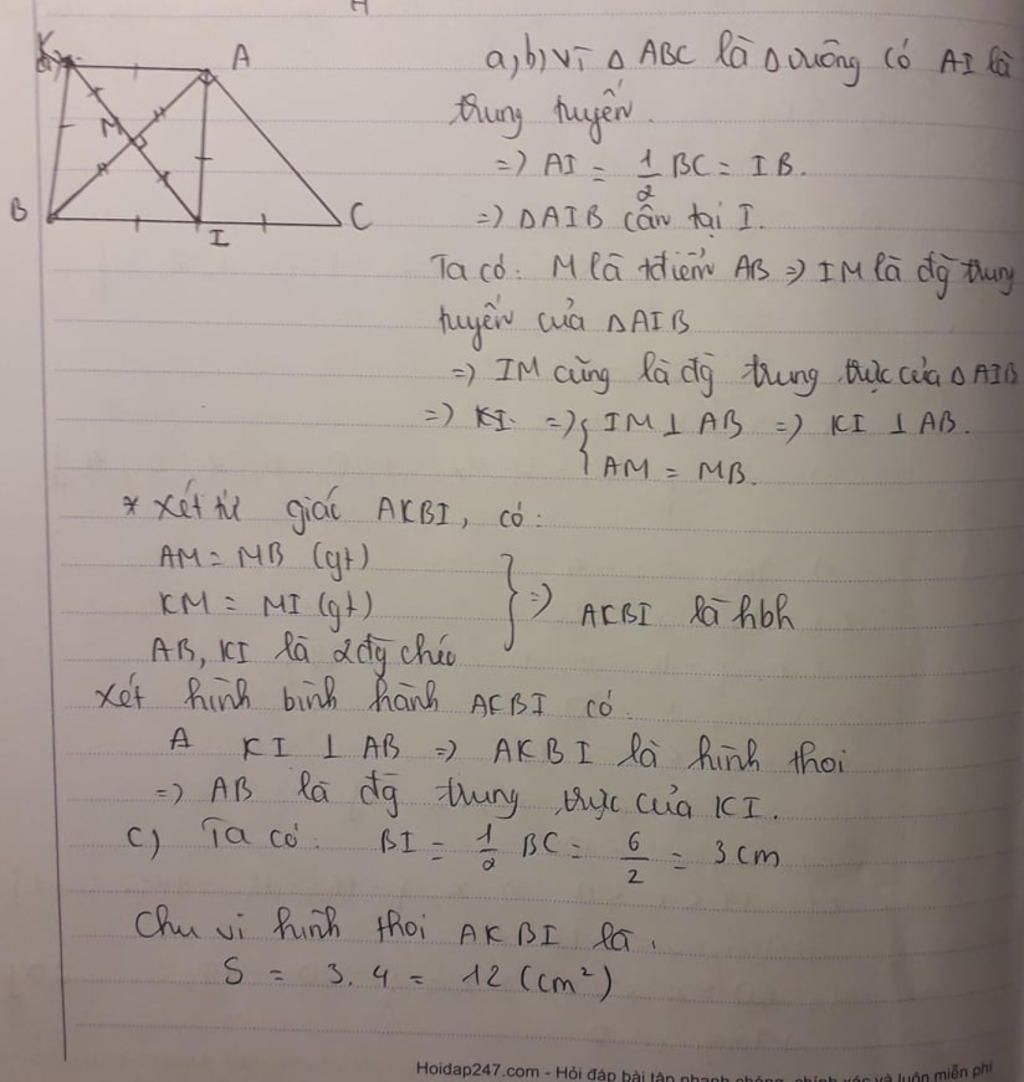 H
K
A
M
B
I
C
a,b) Vì Δ ABC là Δ vuông có AI là
trung tuyến.
=> AI = 1/2 BC = IB.
=> ΔAIB cân tại I.
Ta có: M là tđiểm AB => IM là đg trung
tuyến của ΔAIB
=> IM cũng là đg trung trực của ΔAIB
=> KI. => { IM ⊥ AB => KI ⊥ AB.
AM = MB.
* Xét tứ giác AKBI, có:
AM = MB (gt)
KM = MI (gt)
} => AKBI là hbh
AB, KI là 2 đg chéo
Xét hình bình hành AKBI có:
A KI ⊥ AB => AKBI là hình thoi
=> AB là đg trung trực của KI.
c) Ta có: BI = 1/2 BC = 6/2 = 3 cm
Chu vi hình thoi AKBI là.
S = 3.4 = 12 (cm²)
Hoidap247.com - Hỏi đáp bài tập nhanh chóng, chính xác và luôn miễn phí